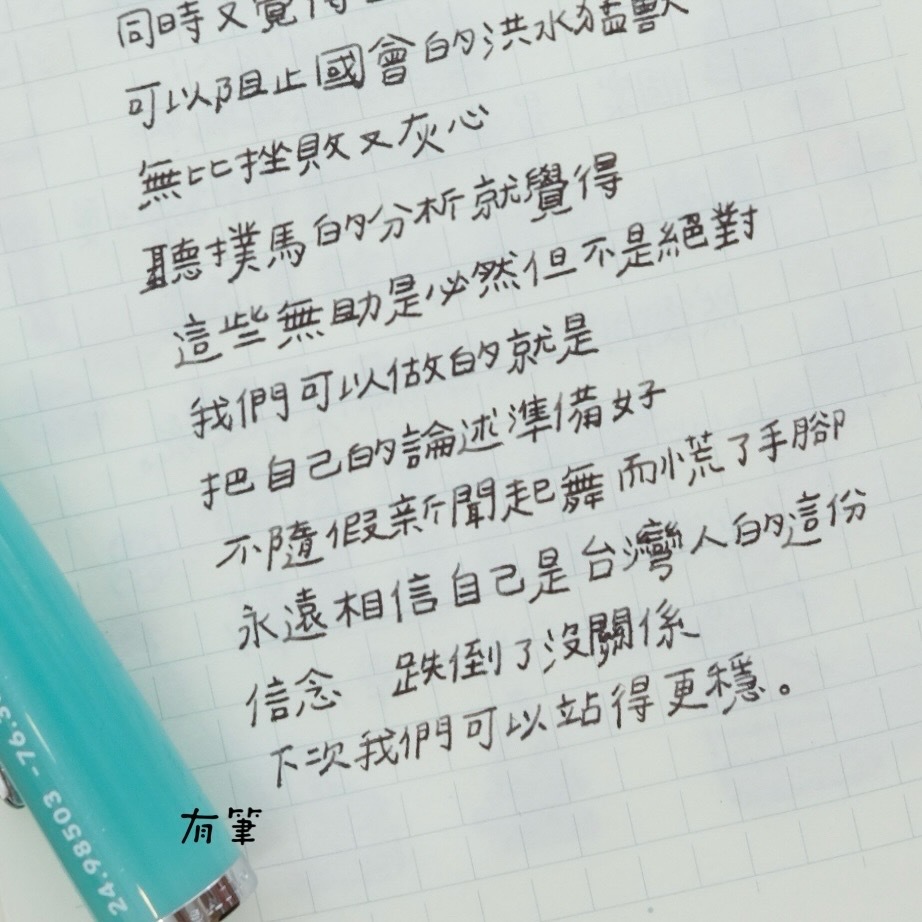 同時又覺得
可以阻止國會的洪水猛獸
無比挫敗又灰心
聽撲馬的分析就覺得
這些無助是必然但不是絕對
我們可以做的就是
把自己的論述準備好
不隨假新聞起舞而慌了手腳
永遠相信自己是台灣人的這份
信念 跌倒了沒關係
下次我們可以站得更穩。
有筆
24.98503 -76.3